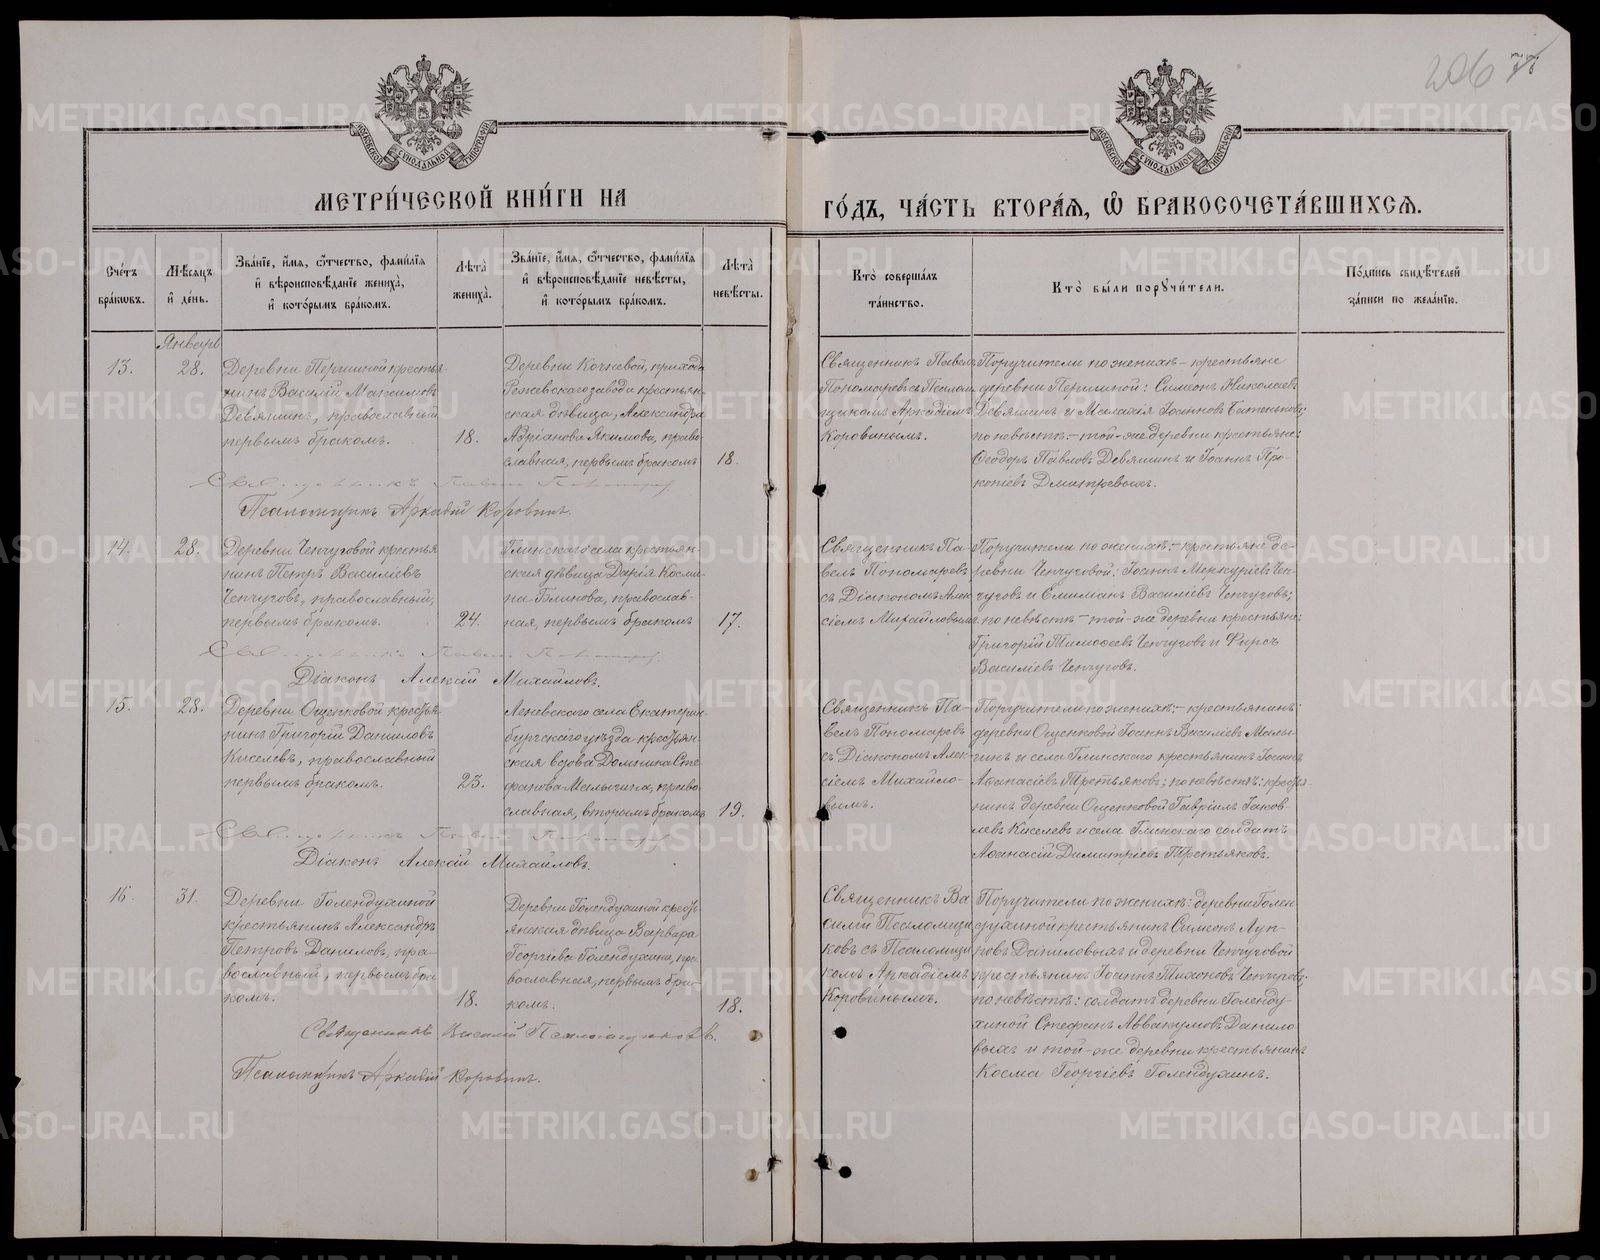 206
МОСКОВСКОЙ СѴНОДАЛЬНОЙ ТИПОГРАФІИ
МОСКОВСКОЙ СѴНОДАЛЬНОЙ ТИПОГРАФІИ
МЕТРИ́ЧЕСКОЙ КНИ́ГИ НА
ГО́ДЪ, ЧА́СТЬ ВТОРА́Ѧ, Ѡ҆ БРАКОСОЧЕТА́ВШИХСѦ.
Сче́тъ
бра́ковъ.
Мѣ́сѧцъ
и҆ де́нь.
Зва́нїе, и҆́мѧ, ѻ҆́тчество, фами́лїѧ
и҆ вѣроисповѣ́данїе жениха̀,
и҆ кото́рымъ бра́комъ.
Лѣта̀
жениха̀.
Зва́нїе, и҆́мѧ, ѻ҆́тчество, фами́лїѧ
и҆ вѣроисповѣ́данїе невѣ́сты,
и҆ кото́рымъ бра́комъ.
Лѣта̀
невѣ́сты.
Кто̀ соверша́лъ
та́инство.
Кто̀ бы́ли порꙋчи́тели.
По́дпись свидѣ́телей
за́писи по жела́нїю.
Январь
13.
28.
Деревни Першиной крестья-
нинъ Василій Максимовъ
Девяшинъ, православный
первымъ бракомъ.
18.
Деревни Кочневой, прихода
Режевскаго завода крестьян-
ская дѣвица, Александра
Адріанова Якимова, право-
славная, первымъ бракомъ
18.
Священникъ Павелъ
Пономаревъ съ Псалом-
щикомъ Аркадіемъ
Коровинымъ.
Поручители по женихѣ – крестьяне
деревни Першиной: Симеонъ Николаевъ
Девяшинъ и Малахія Іоанновъ Батеньковъ;
по невѣстѣ: – той-же деревни крестьяне:
Ѳеодоръ Павловъ Девяшинъ и Іоаннъ Про-
копіевъ Дмитревыхъ.
Священникъ Павелъ Пономаревъ
Псаломщикъ Аркадій Коровинъ.
14.
28.
Деревни Ченчуговой крестья
нинъ Петръ Василіевъ
Ченчуговъ, православный,
первымъ бракомъ.
24.
Глинскаго села крестьян-
ская дѣвица Дарія Косми-
на Блинова, православ-
ная, первымъ бракомъ
17.
Священникъ Па-
велъ Пономаревъ
съ Діакономъ Алек-
сіемъ Михайловымъ
Поручители по женихѣ: – крестьяне де-
ревни Ченчуговой: Іоаннъ Меркуріевъ Чен-
чуговъ и Емиліанъ Василіевъ Ченчуговъ;
по невѣстѣ – той-же деревни крестьяне:
Григорій Тимоѳеевъ Ченчуговъ и Фирсъ
Василіевъ Ченчуговъ.
Священникъ Павелъ Пономаревъ
Діаконъ Алексій Михайловъ.
15.
28.
Деревни Ощепковой крестья
нинъ Григорій Даниловъ
Киселевъ, православный
первымъ бракомъ.
23.
Леневскаго села Екатерин-
бургскаго уѣзда крестьян-
ская вдова Домнина Сте
фанова Малыгина, право
славная, вторымъ бракомъ
19.
Священникъ Па-
велъ Пономаревъ
съ Діакономъ Алек-
сіемъ Михайло-
вымъ.
Поручители по женихѣ: – крестьянинъ
деревни Ощепковой Іоаннъ Василіевъ Малы-
гинъ и села Глинскаго крестьянинъ Іоаннъ
Аѳанасіевъ Третьяковъ; по невѣстѣ: крестья
нинъ деревни Ощепковой Гавріилъ Іаков
левъ Киселевъ и села Глинскаго солдатъ
Аѳанасій Димитріевъ Третьяковъ.
Священникъ Павелъ Пономаревъ
Діаконъ Алексій Михайловъ.
16.
31.
Деревни Голендухиной
крестьянинъ Александръ
Петровъ Даниловъ, пра-
вославный, первымъ бра
комъ.
18.
Деревни Голендухиной кресть
янская дѣвица Варвара
Георгіева Голендухина, пра
вославная, первымъ бра-
комъ.
18.
Священникъ Ва
силій Псаломщи
ковъ съ Псаломщи
комъ Аркадіемъ
Коровинымъ.
Поручители по женихѣ: деревни Голен
духиной крестьянинъ Симеонъ Луп-
повъ Даниловыхъ и деревни Ченчуговой
крестьянинъ Іоаннъ Тихоновъ Ченчуговъ;
по невѣстѣ: солдатъ деревни Голенду-
хиной Стефанъ Аввакумовъ Данило
выхъ и той-же деревни крестьянинъ
Косма Георгіевъ Голендухинъ.
Священникъ Василій Псаломщиковъ.
Псаломщикъ Аркадій Коровинъ.
METRIKI.GASO-URAL.RU